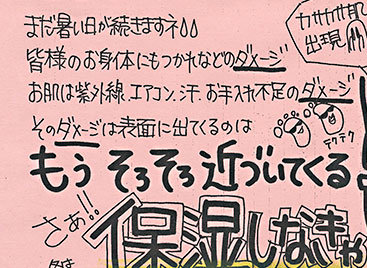 まだ暑い日が続きますネ
皆様のお身体にもつかれなどのダメージ
お肌は紫外線、エアコン、汗、お手入れ不足のダメージ
そのダメージは表面に出てくるのは
もう そろそろ 近づいてくる
さぁ!!
保湿しなきゃ
カサカサ肌
出現
テクテク